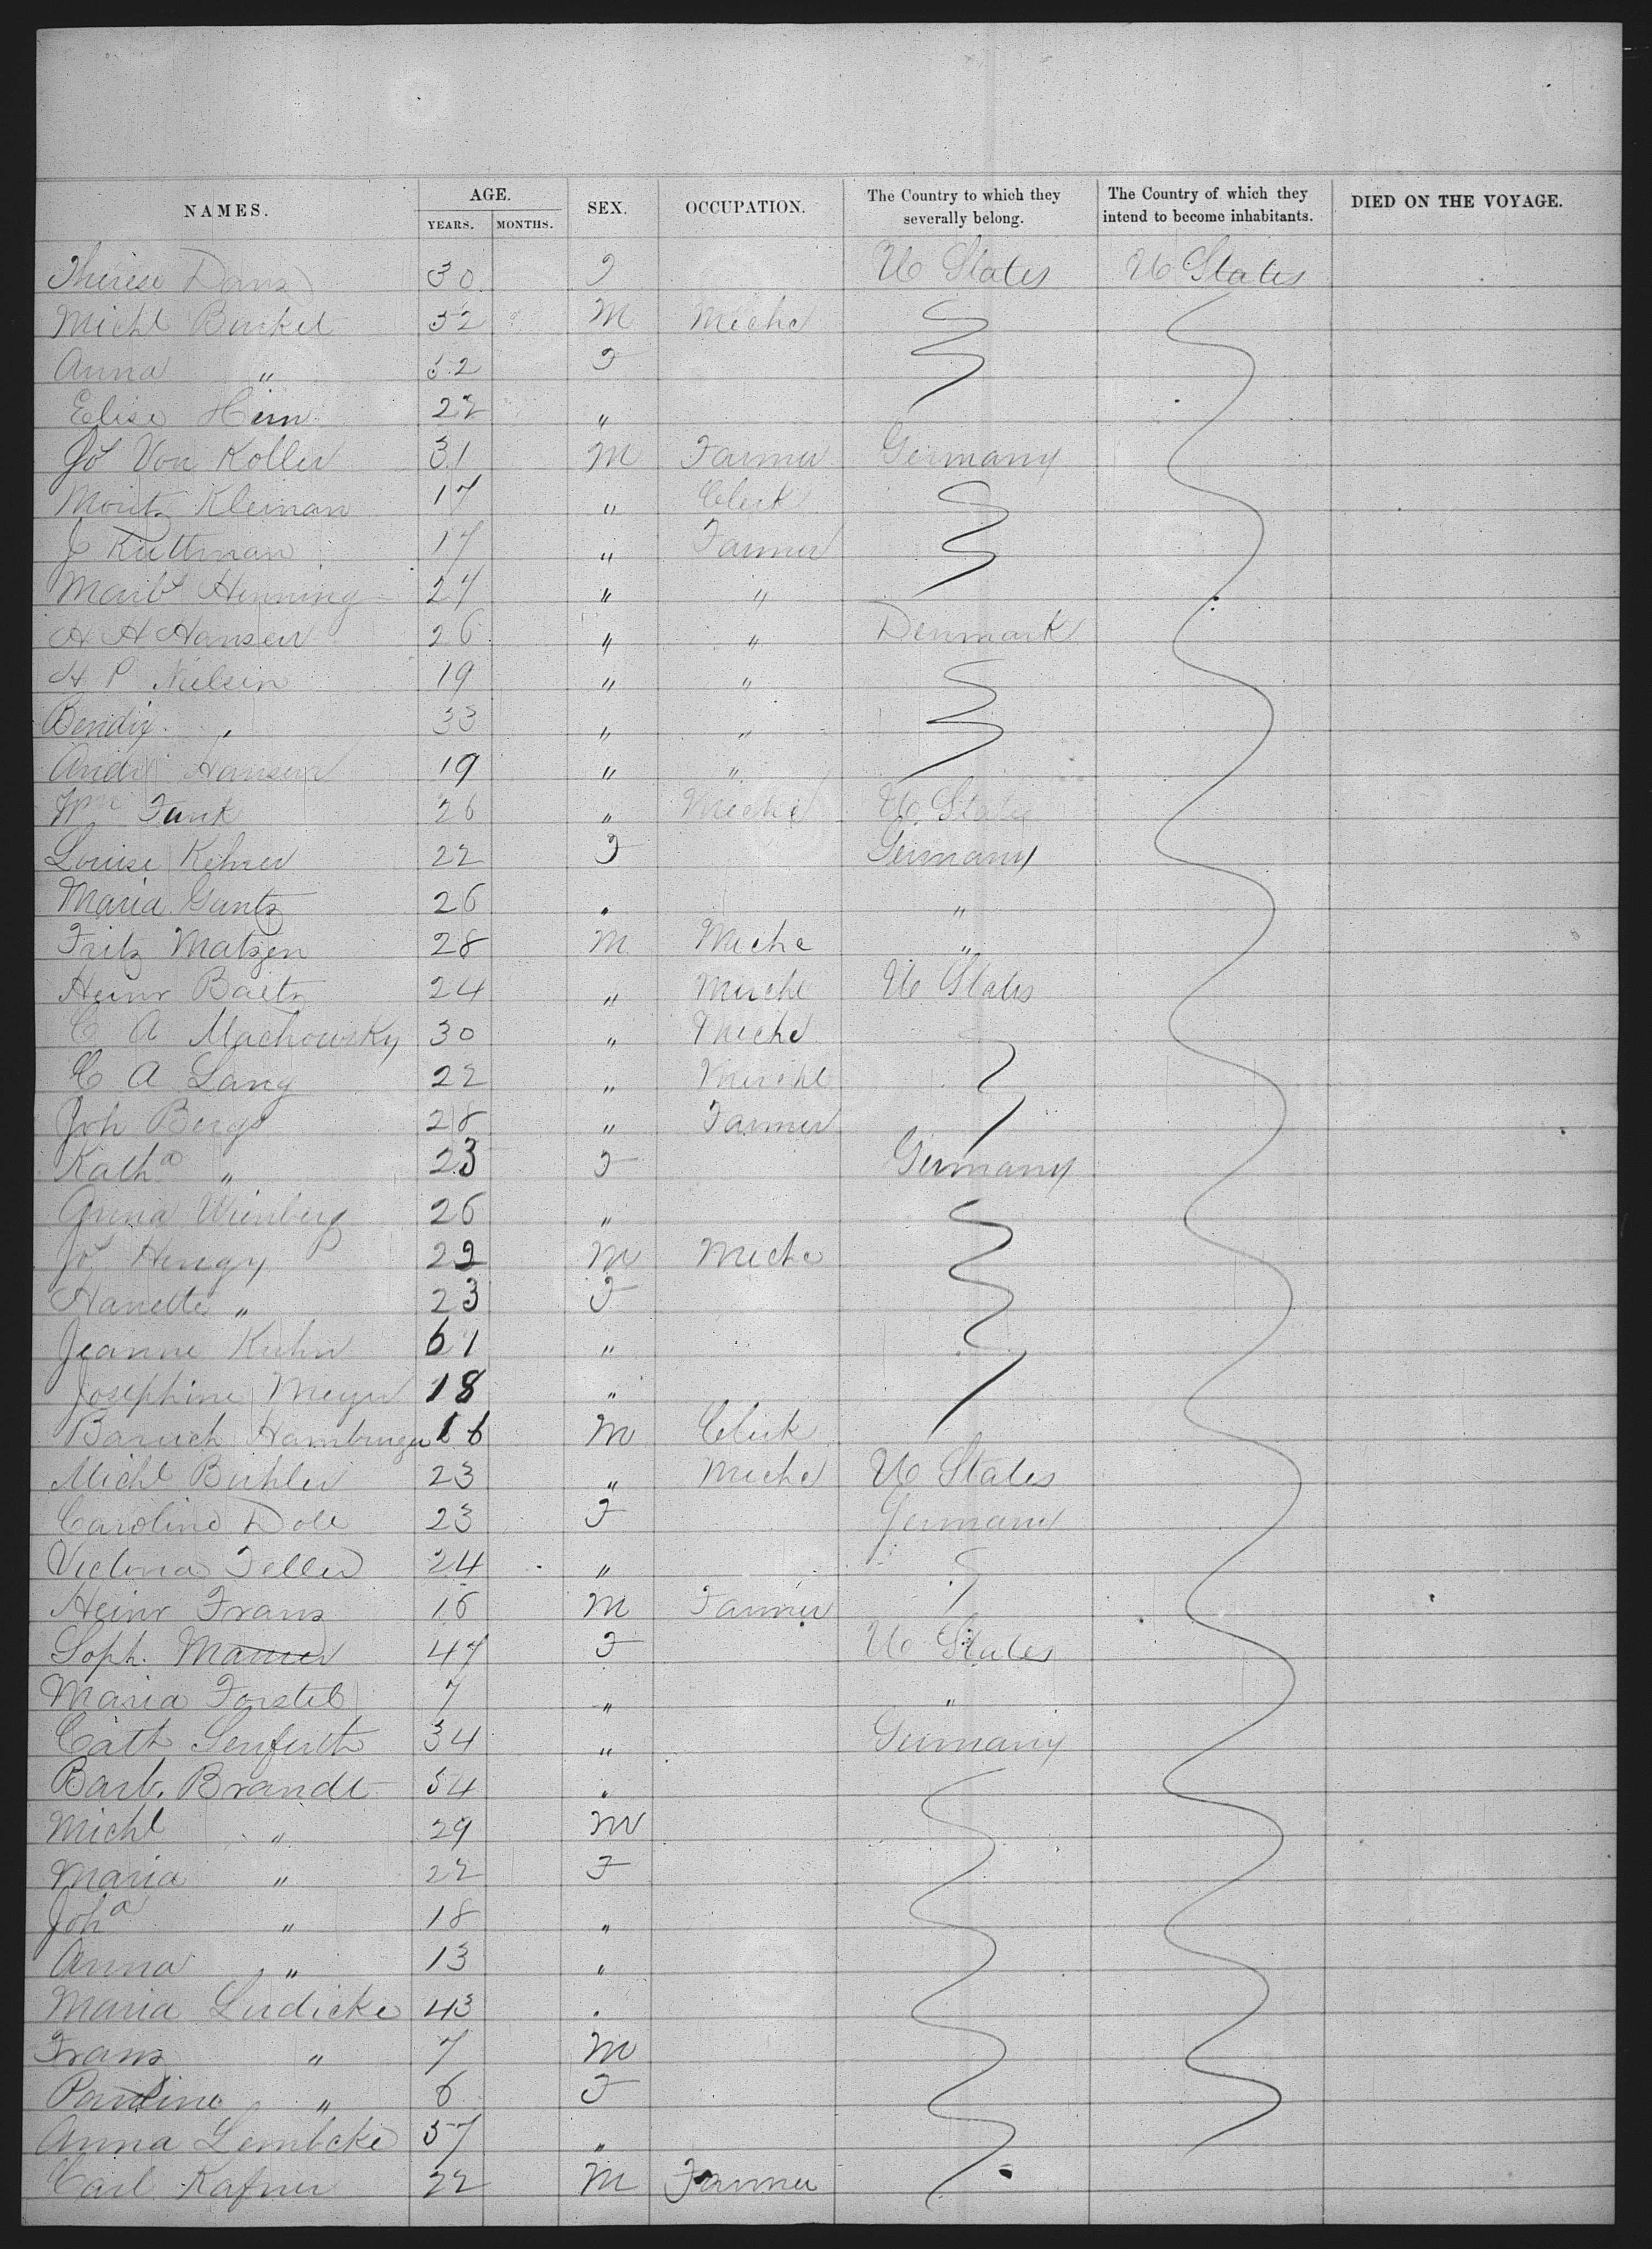 NAMES. AGE. SEX. OCCUPATION. The Country to which they severally belong. The Country of which they intend to become inhabitants. DIED ON THE VOYAGE.
YEARS. MONTHS.
Therese Danz 30 F U States U States
Michl Burkel 32 M Mechc
Anna " 52 F
Elise Hirn 22 "
Jos Von Koller 31 M Farmer Germany
Moritz Kleinan 17 " Clerk
J Kuttman 17 " Farmer
Henning 27 " "
H H Hansen 26 " " Denmark
H P Nielsen 19 " "
Bendix " 33 " "
Andr Hansen 19 " "
Wm Funk 26 " Mechc U States
Louise Kehrer 22 F Germany
Maria Gantz 26 " "
Fritz Matzen 28 M Mechc "
Heinr Baetz 24 " Mercht U States
C A Machowsky 30 " Mechc
C A Lang 22 " Mercht
Joh Berge 28 " Farmer
Katha " 23 F Germany
Wienberg 26 "
Jos Hengy 22 M Mechc
Hanette " 23 F
Jeanne Kuhn 61 "
Josephine Meyer 18 "
Baruch Hamburger 16 M Clerk
Michl Buhler 23 " Mechc U States
Caroline Doll 23 F Germany
Victoria Feller 24 "
Heinr Franz 16 M Farmer
Soph. Maurer 47 F U States
Maria Forstel 7 " "
Cath Senfuth 34 " Germany
Barb. Brandt 54 "
Michl " 29 M
Maria " 22 F
Joha " 18 "
Anna " 13 "
Maria Ludicke 43 "
Franz " 7 M
Pauline " 6 F
Anna Lembcke 57 "
Carl Kafner 22 M Farmer